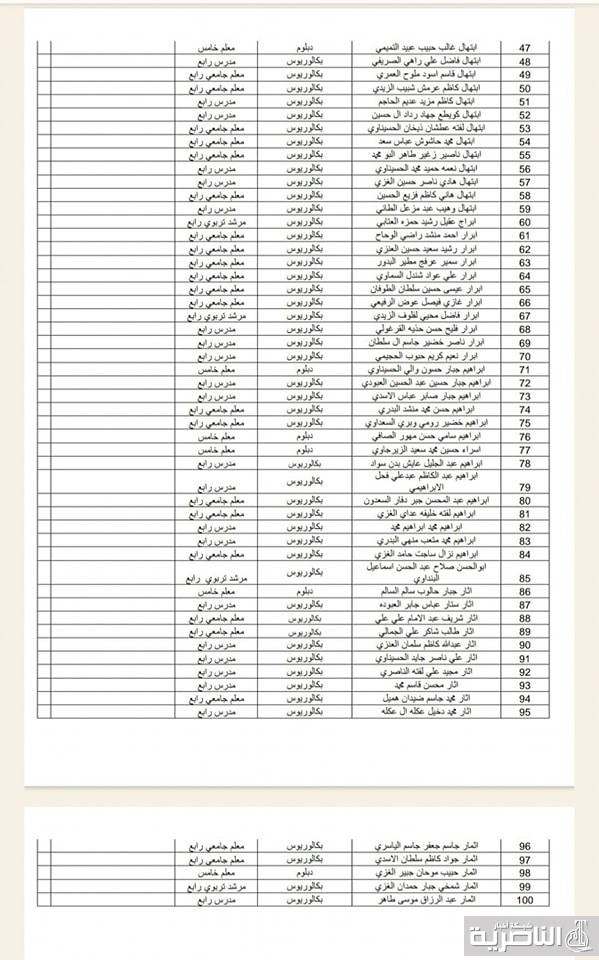 47 ابتهال غالب حبيب عبيد التميمي دبلوم معلم خامس
48 ابتهال فاضل علي راهي الصريفي بكالوريوس مدرس رابع
49 ابتهال قاسم اسود ملوح العمري بكالوريوس معلم جامعي رابع
50 ابتهال كاظم عرمش شبيب الزيدي بكالوريوس معلم جامعي رابع
51 ابتهال كاظم مزيد عديم الحاجم بكالوريوس مدرس رابع
52 ابتهال كويطع جهاد رداد ال حسين بكالوريوس مدرس رابع
53 ابتهال لفته عطشان ذيخان الحسيناوي بكالوريوس معلم جامعي رابع
54 ابتهال محمد حاشوش عباس سعد بكالوريوس معلم جامعي رابع
55 ابتهال ناصير زغير طاهر البو محمد بكالوريوس معلم جامعي رابع
56 ابتهال نعمه حميد محمد الحسيناوي بكالوريوس مدرس رابع
57 ابتهال هادي ناصر حسين الغزي بكالوريوس مدرس رابع
58 ابتهال هاني كاظم فزيع الحسين بكالوريوس معلم جامعي رابع
59 ابتهال وهيب عبد مزعل الطائي بكالوريوس مدرس رابع
60 ابراج عقيل رشيد حمزه العتابي بكالوريوس مرشد تربوي رابع
61 ابرار احمد منشد راضي الوحاح بكالوريوس معلم جامعي رابع
62 ابرار رشيد سعيد حسين العنزي بكالوريوس معلم جامعي رابع
63 ابرار سمير عرفج مطير البدور بكالوريوس معلم جامعي رابع
64 ابرار علي عواد شندل السماوي بكالوريوس معلم جامعي رابع
65 ابرار عيسى حسين سلطان الطوفان بكالوريوس معلم جامعي رابع
66 ابرار غازي فيصل عوض الرفيعي بكالوريوس معلم جامعي رابع
67 ابرار فاضل محيي لفلوف الزيدي بكالوريوس مرشد تربوي رابع
68 ابرار فليح حسن حذيه القرغولي بكالوريوس مدرس رابع
69 ابرار ناصر خضير جاسم ال سلطان بكالوريوس مدرس رابع
70 ابرار نعيم كريم حبوب الحجيمي بكالوريوس مدرس رابع
71 ابراهيم جبار حسون والي الحسيناوي دبلوم معلم خامس
72 ابراهيم جبار حسين عبد الحسين العبودي بكالوريوس مدرس رابع
73 ابراهيم جبار صابر عباس الاسدي بكالوريوس مدرس رابع
74 ابراهيم حسن محمد منشد البدري بكالوريوس معلم جامعي رابع
75 ابراهيم خضير رومي وبري السعداوي بكالوريوس معلم جامعي رابع
76 ابراهيم سامي حسن مهور الصافي دبلوم معلم خامس
77 اسراء حسين محمد سعيد الزيرجاوي دبلوم معلم خامس
78 ابراهيم عبد الجليل عايش بدن سواد بكالوريوس مدرس رابع
79 ابراهيم عبد الكاظم عبدعلي فحل الابراهيمي بكالوريوس مدرس رابع
80 ابراهيم عبد المحسن جبر دفار السعدون بكالوريوس معلم جامعي رابع
81 ابراهيم لفته خليفه عداي الغزي بكالوريوس معلم جامعي رابع
82 ابراهيم محمد ابراهيم محمد بكالوريوس مدرس رابع
83 ابراهيم محمد متعب منهي البدري بكالوريوس مدرس رابع
84 ابراهيم نزال ساجت حامد الغزي بكالوريوس معلم جامعي رابع
85 ابوالحسن صلاح عبد الحسن اسماعيل البنداوي بكالوريوس مرشد تربوي رابع
86 اثار جبار حالوب سالم السالم دبلوم معلم خامس
87 اثار ستار عباس جابر العبوده بكالوريوس مدرس رابع
88 اثار شريف عبد الامام علي علي بكالوريوس معلم جامعي رابع
89 اثار طالب شاكر علي الجمالي بكالوريوس معلم جامعي رابع
90 اثار عبدالله كاظم سلمان العنزي بكالوريوس مدرس رابع
91 اثار علي ناصر جايد الحسيناوي بكالوريوس مدرس رابع
92 اثار مجيد علي لفته الناصري بكالوريوس مدرس رابع
93 اثار محسن قاسم محمد بكالوريوس مدرس رابع
94 اثار محمد جاسم ضيدان هميل بكالوريوس معلم جامعي رابع
95 اثار محمد دخيل عكله ال عكله بكالوريوس مدرس رابع
96 اثمار جاسم جعفر جاسم الياسري بكالوريوس معلم جامعي رابع
97 اثمار جواد كاظم سلطان الاسدي بكالوريوس معلم جامعي رابع
98 اثمار حبيب موحان جبير الغزي دبلوم معلم خامس
99 اثمار شمخي جبار حمدان الغزي بكالوريوس مرشد تربوي رابع
100 اثمار عبد الرزاق موسى طاهر بكالوريوس مدرس رابع
شبكة اخبار
الناصرية